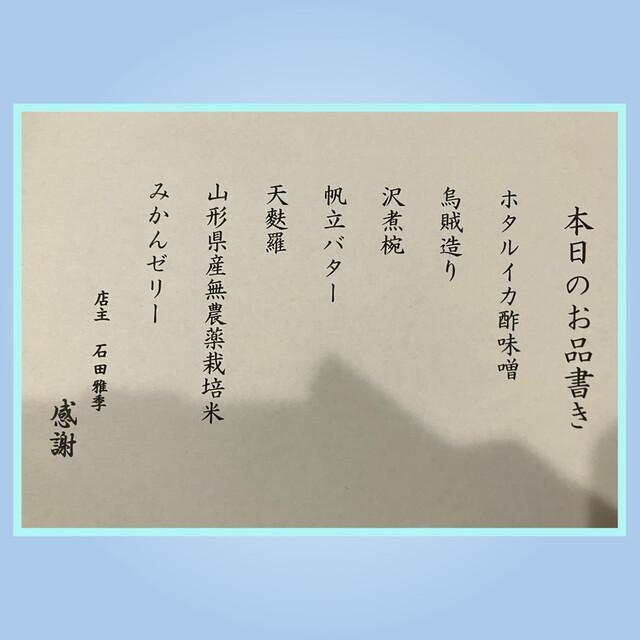 本日のお品書き
ホタルイカ酢味噌
烏賊造り
沢煮椀
帆立バター
天麩羅
山形県産無農薬栽培米
みかんゼリー
店主 石田雅季
感謝